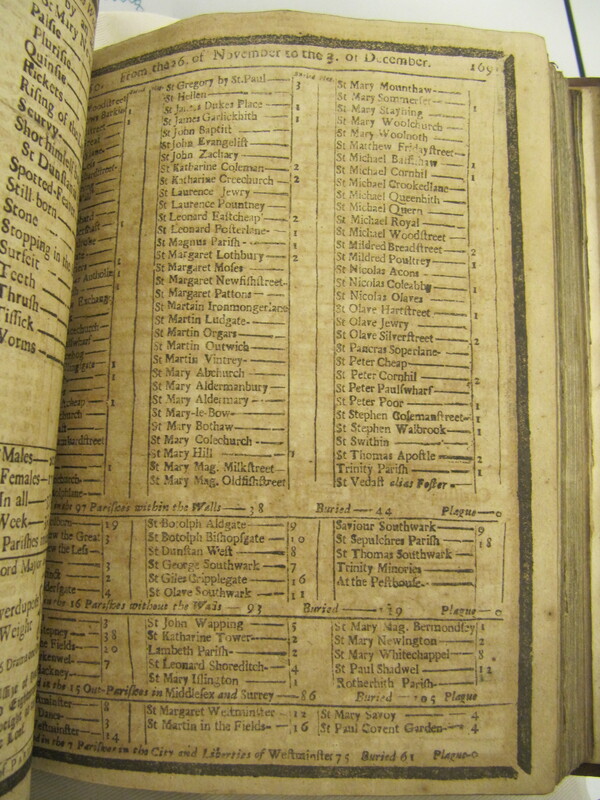 From the 26. of November to the 3. of December. 169
St Gregory by St. Paul 3
St Hellen
St James Dukes Place 1
St James Garlickhith 1
St John Baptist
St John Evangelist
St John Zachary
St Katharine Coleman 2
St Katharine Creechurch 2
St Laurence Jewry
St Laurence Pountney
St Leonard Eastcheap 2
St Leonard Fosterlane 1
St Magnus Parish 1
St Margaret Lothbury 2
St Margaret Moses
St Margaret Newfishstreet
St Margaret Pattons
St Martain Ironmongerlane
St Martin Ludgate
St Martin Orgars
St Martin Outwich
St Martin Vintrey
St Mary Abchurch
St Mary Aldermanbury
St Mary Aldermary
St Mary-le-Bow
St Mary Bothaw
St Mary Colechurch
St Mary Hill
St Mary Mag. Milkstreet
St Mary Mag. Oldfishstreet
St Mary Mounthaw
St Mary Sommerset
St Mary Stayning
St Mary Woolchurch
St Mary Woolnoth
St Matthew Fridaystreet
St Michael Bassishaw
St Michael Cornhil
St Michael Crookedlane
St Michael Queenhith
St Michael Quern
St Michael Royal
St Michael Woodstreet
St Mildred Breadstreet
St Mildred Poultrey
St Nicolas Acons
St Nicolas Coleabby
St Nicolas Olaves
St Olave Hartstreet
St Olave Jewry
St Olave Silverstreet
St Pancras Soperlane
St Peter Cheap
St Peter Cornhil
St Peter Paulswharf
St Peter Poor
St Stephen Colemanstreet
St Stephen Walbrook
St Swithin
St Thomas Apostle
Trinity Parish
St Vedast alias Foster
the 97 Parishes within the Walls 38 Buried 44 Plague 0
St Botolph Aldgate 9
St Botolph Bishopsgate 10
St Dunstan West 8
St George Southwark 7
St Giles Cripplegate 16
St Olave Southwark 11
Saviour Southwark 9
St Sepulchres Parish 18
St Thomas Southwark
Trinity Minories
At the Pesthouse
the 16 Parishes without the Walls 93 Buried Plague 0
St John Wapping 5
St Katharine Tower 2
Lambeth Parish 2
St Leonard Shoreditch 4
St Mary Islington 1
St Mary Mag. Bermondsey
St Mary Newington 2
St Mary Whitechappel 8
St Paul Shadwel 12
Rotherhith Parish
the 15 Out-Parishes in Middlesex and Surrey 86 Buried Plague
St Margaret Westminster 12
St Martin in the Fields 16
St Mary Savoy 4
St Paul Covent Garden 4
the 7 Parishes in the City and Liberties of Westminster 75 Buried 61 Plague 0
St Mary
Palsie
Plurisie
Quinsie
Rickets
Rising of the
Scurvy
Shot himself
St Dunstan
Spotted Feaver
Still born
Stone
Stopping in the
Surfeit
Teeth
Thrush
Tissick
Worms
Males
Females
In all
Week
Parishes
Lord Mayor
Weight